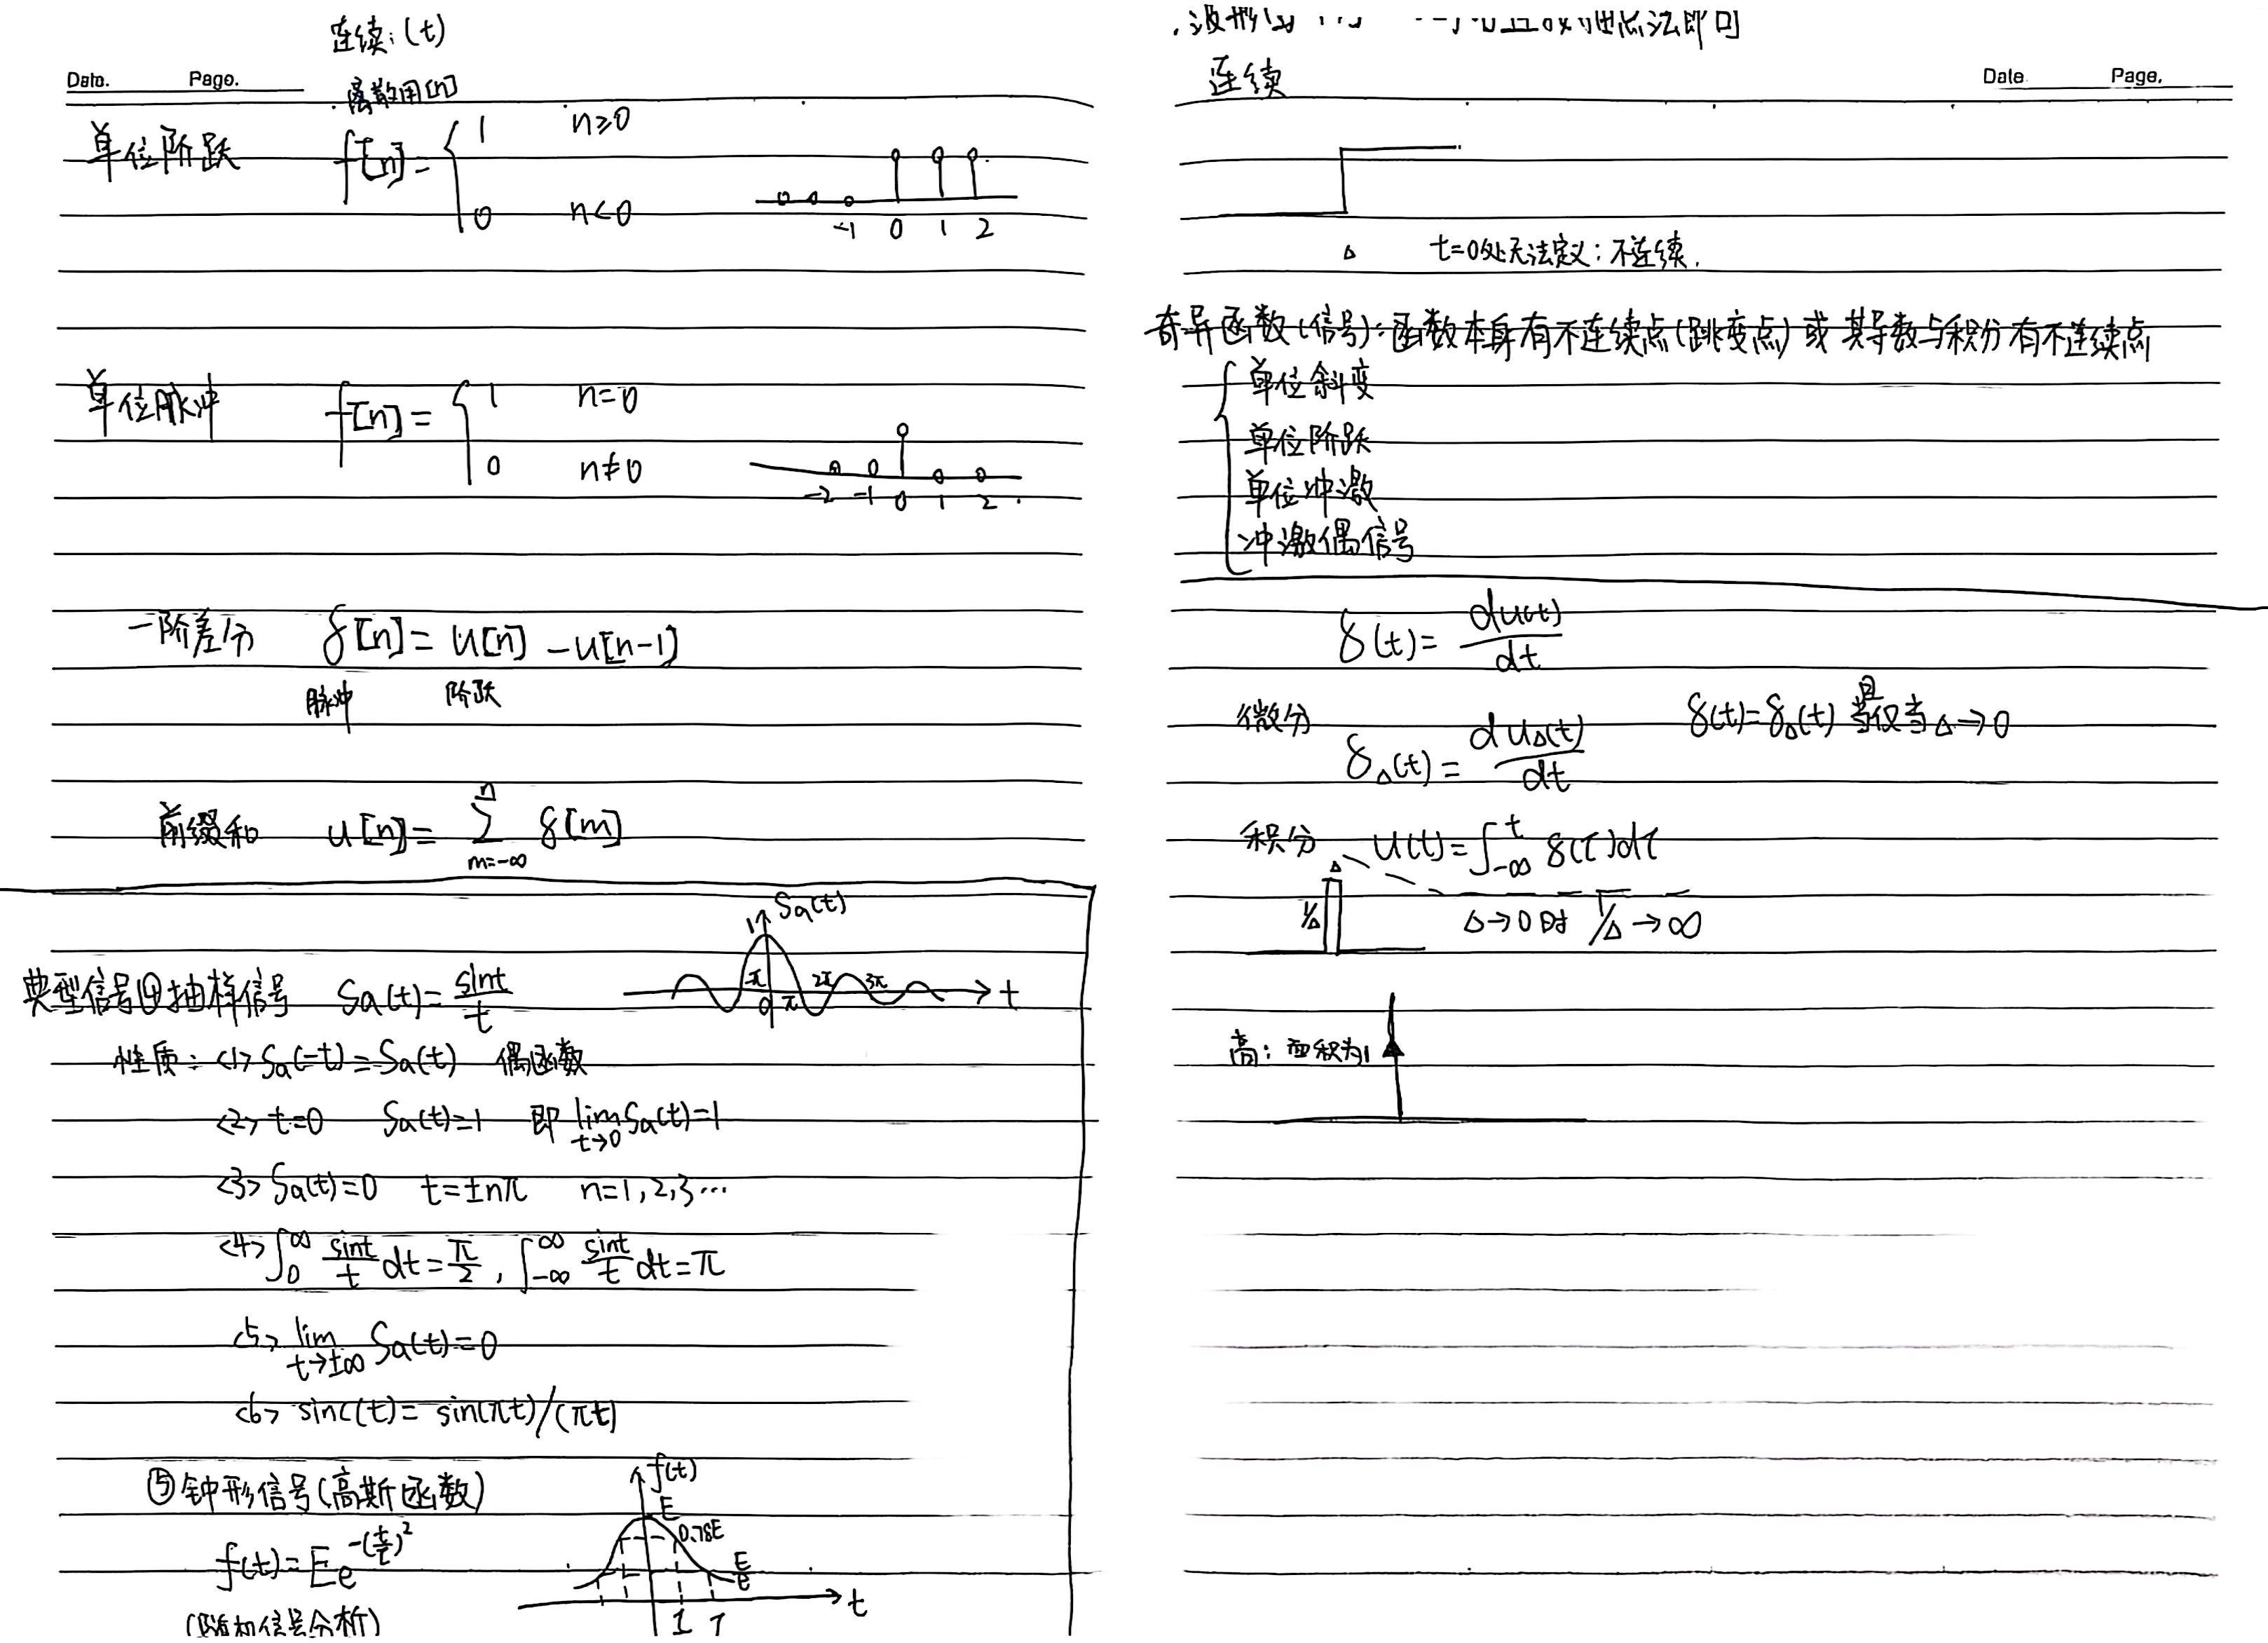 连续:(t)
Date. Page.
离散用[n]
单位阶跃 f[n]= { 1 n≥0
0 n<0
-1 0 1 2
单位脉冲 f[n]= { 1 n=0
0 n≠0
-2 -1 0 1 2
一阶差分 δ[n]= u[n] -u[n-1]
脉冲 阶跃
前缀和 u[n]= ∑_{m=-∞}^{n} δ[m]
典型信号④抽样信号 Sa(t)= sint/t
1 Sa(t)
-π 0 π 2π 3π t
性质: <1> Sa(-t)=Sa(t) 偶函数
<2> t=0 Sa(t)=1 即 lim_{t→0} Sa(t)=1
<3> Sa(t)=0 t=±nπ n=1,2,3…
<4> ∫_0^∞ sint/t dt=π/2, ∫_{-∞}^∞ sint/t dt=π
<5> lim_{t→±∞} Sa(t)=0
<6> sinc(t)= sin(πt)/(πt)
⑤钟形信号(高斯函数)
f(t)=Ee^{-(t/τ)^2}
(随机信号分析)
f(t)
E
0.78E
E/e
t
连续
Date Page.
Δ t=0处无法定义:不连续.
奇异函数(信号):函数本身有不连续点(跳变点)或其导数与积分有不连续点
{ 单位斜变
单位阶跃
单位冲激
冲激偶信号
δ(t)= du(t)/dt
微分 δ_Δ(t)= du_Δ(t)/dt δ(t)=δ_Δ(t) 当且仅当Δ→0
积分 u(t)=∫_{-∞}^t δ(τ)dτ
Δ
1/Δ Δ→0时 1/Δ→∞
高:面积为1